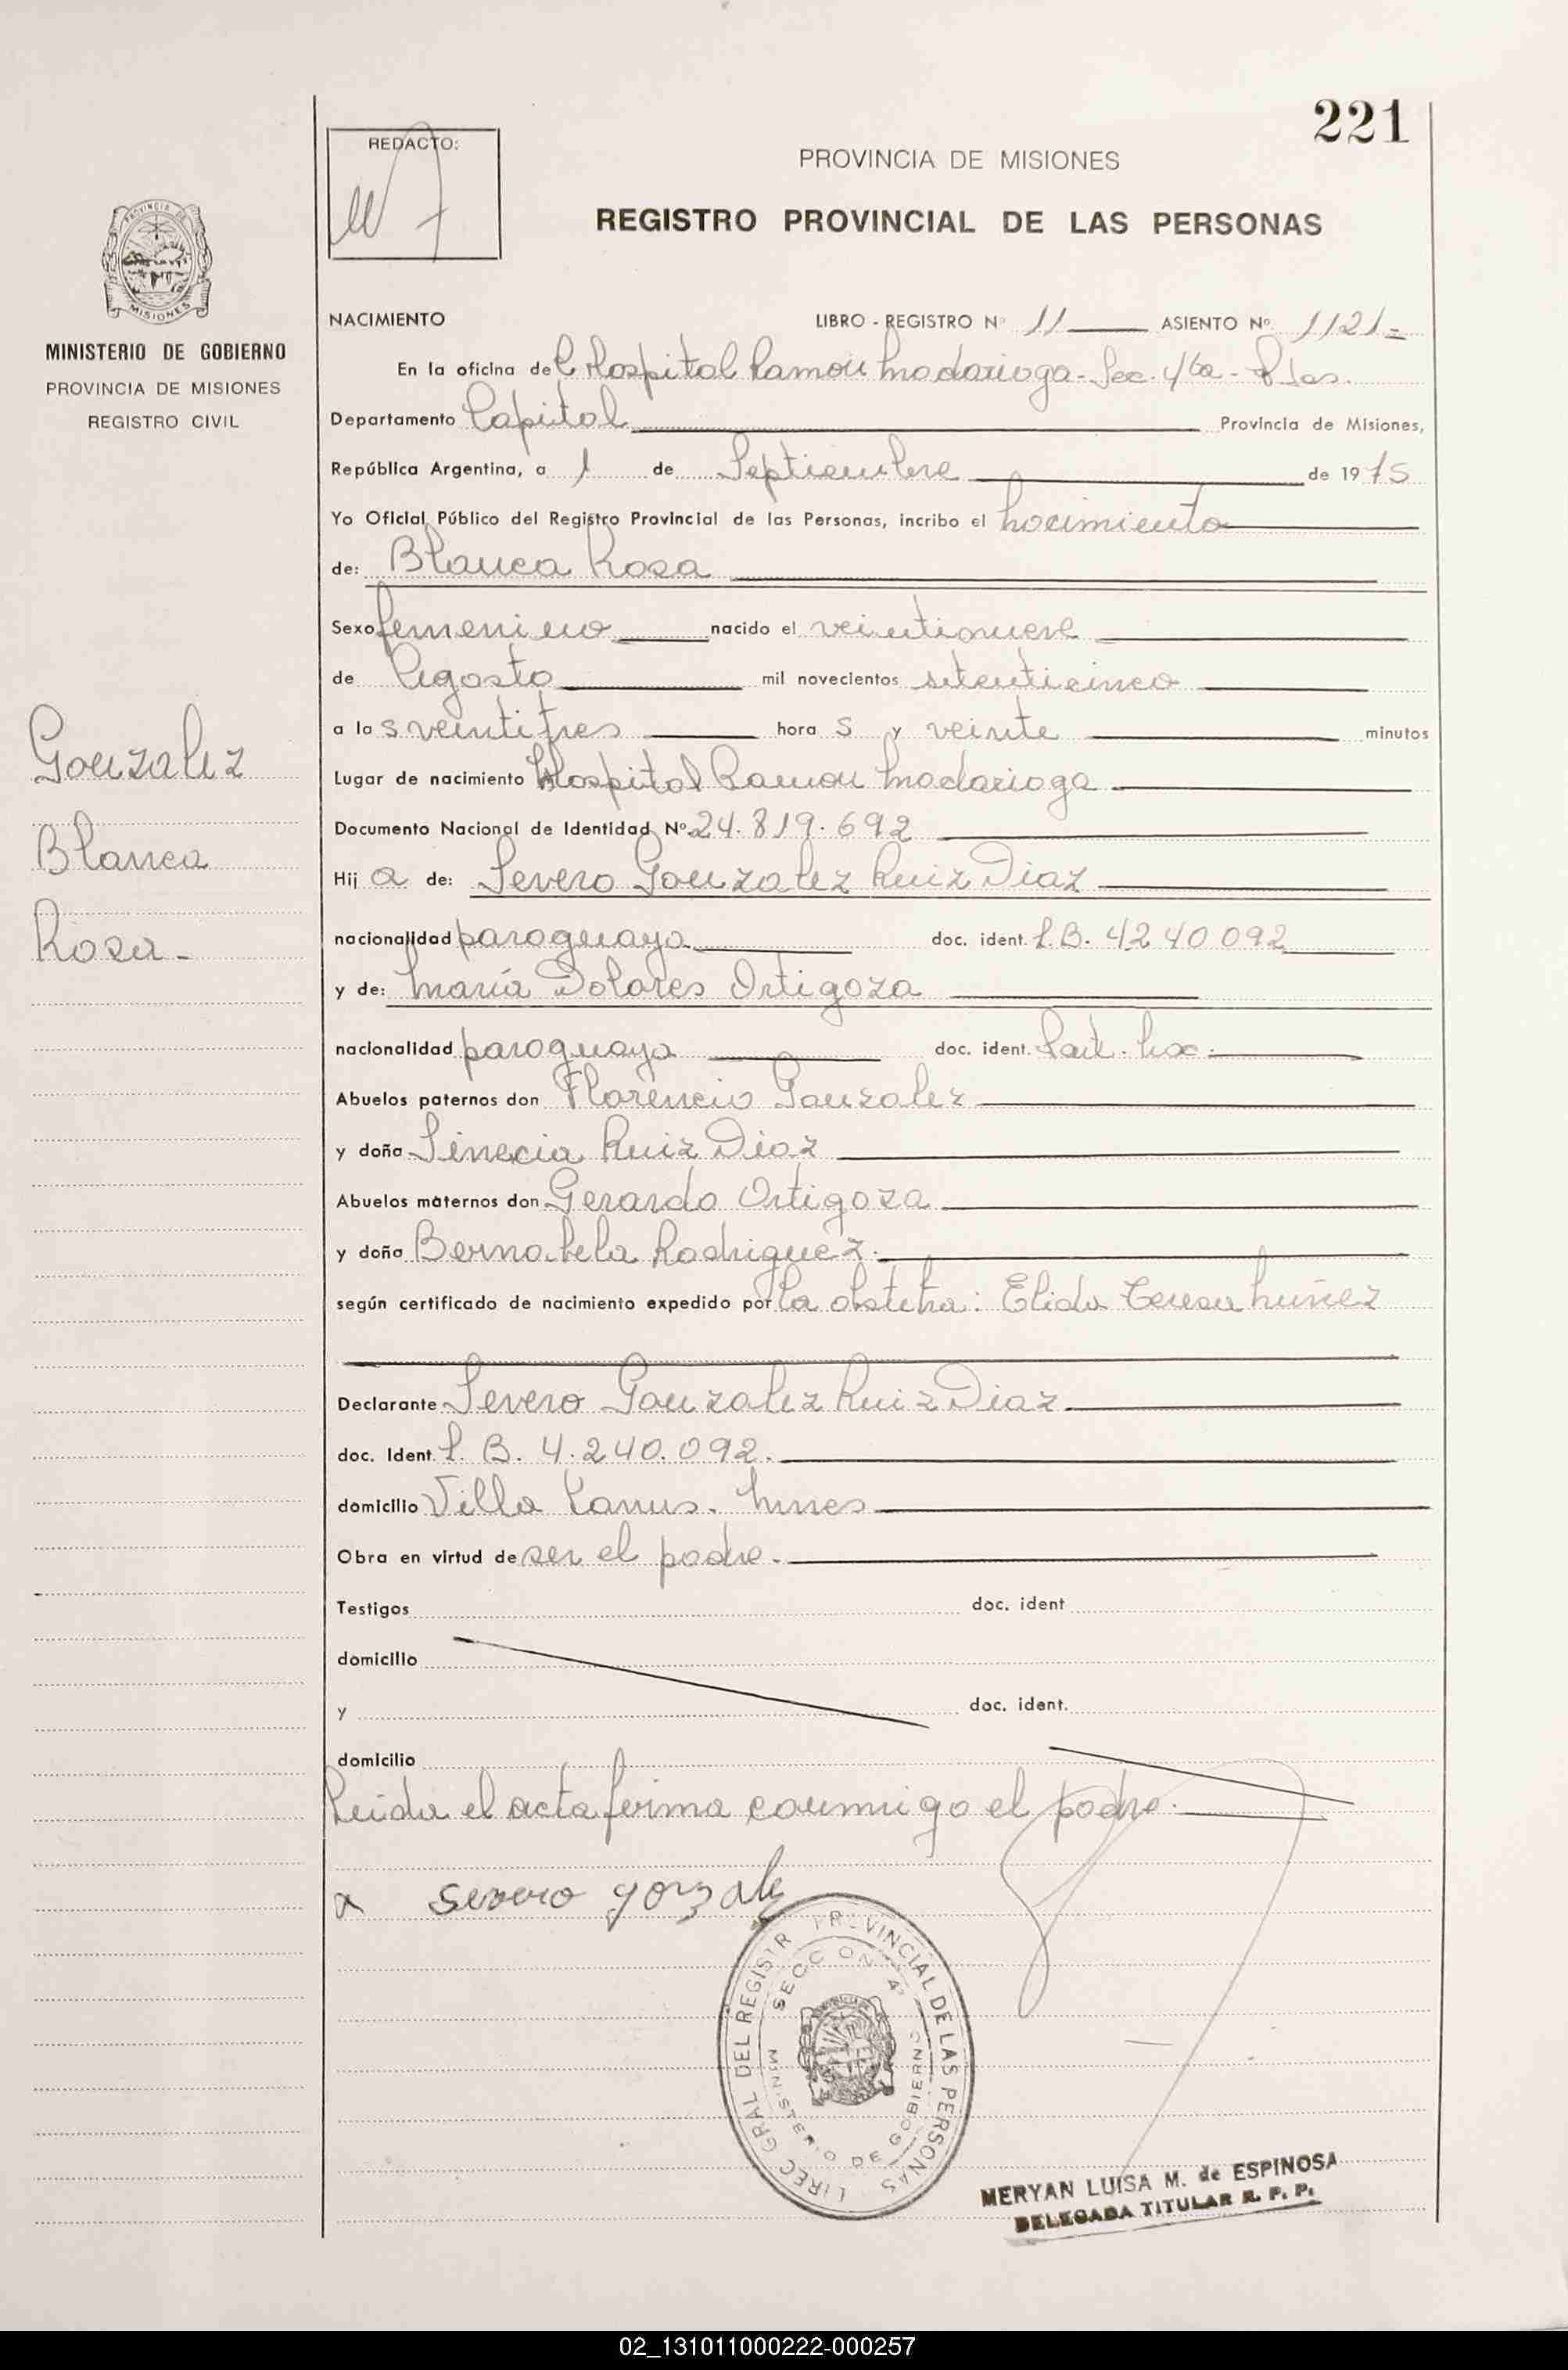 221
REDACTO:
PROVINCIA DE MISIONES
REGISTRO PROVINCIAL DE LAS PERSONAS
PROVINCIA DE
MISIONES
MINISTERIO DE GOBIERNO
PROVINCIA DE MISIONES
REGISTRO CIVIL
Gonzalez
Blanca
Rosa-
NACIMIENTO LIBRO - REGISTRO Nº 11 ASIENTO Nº 1121-
En la oficina del Hospital Ramon Madariaga - Sec. 4ta - Pdas.
Departamento Capital Provincia de Misiones,
República Argentina, a 1 de Septiembre de 1975
Yo Oficial Público del Registro Provincial de las Personas, incribo el nacimiento
de: Blanca Rosa
Sexo femenino nacido el veintinueve
de Agosto mil novecientos setenticinco
a las veintitres hora s y veinte minutos
Lugar de nacimiento Hospital Ramon Madariaga
Documento Nacional de Identidad Nº 24.819.692
Hij a de: Severo Gonzalez Ruiz Diaz
nacionalidad paraguaya doc. ident. C.B. 4240092
y de: María Dolores Ortigoza
nacionalidad paraguaya doc. ident. Part. Nac.
Abuelos paternos don Florencio Gonzalez
y doña Sinecia Ruiz Diaz
Abuelos maternos don Gerardo Ortigoza
y doña Bernabela Rodriguez.
según certificado de nacimiento expedido por la obstetra: Elida Teresa Nuñez
Declarante Severo Gonzalez Ruiz Diaz
doc. Ident. C.B. 4.240.092.
domicilio Villa Lanus. Mnes
Obra en virtud de ser el padre.
Testigos doc. ident
domicilio
y doc. ident.
domicilio
Leida el acta firma conmigo el padre.
severo gonzalez
DIREC GRAL DEL REGISTR PROVINCIAL DE LAS PERSONAS
SECCION 4ª
MINISTERIO DE GOBIERNO
MERYAN LUISA M. de ESPINOSA
DELEGADA TITULAR R. P. P.
02_131011000222-000257